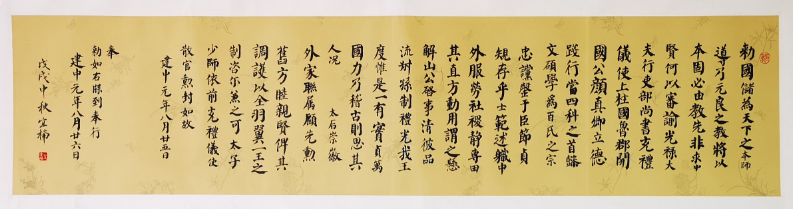 勅國儲為天下之本師
導乃元良之教將以
本固必由教先非求中
賢何以審諭光祿大
夫行吏部尚書充禮
儀使上柱國魯郡開
國公顏真卿立德
踐行當四科之首懿
文碩學為百氏之宗
忠讜罄于臣節貞
規存乎士範述職中
外服勞社稷靜專由
其直方動用謂之懸
解山公啓事清彼品
流叔孫制禮光我王
度惟是一有實貞萬
國力乃稽古則思其
人況 太后崇徽
外家聯屬顧先勳
舊方睦親賢俾其
調護以全羽翼一王之
制咨尔兼之可 太子
少師依前充禮儀使
散官勳封如故
建中元年八月廿五日
奉
勅如右牒到奉行
建中元年八月廿六日
戊戌中秋宜